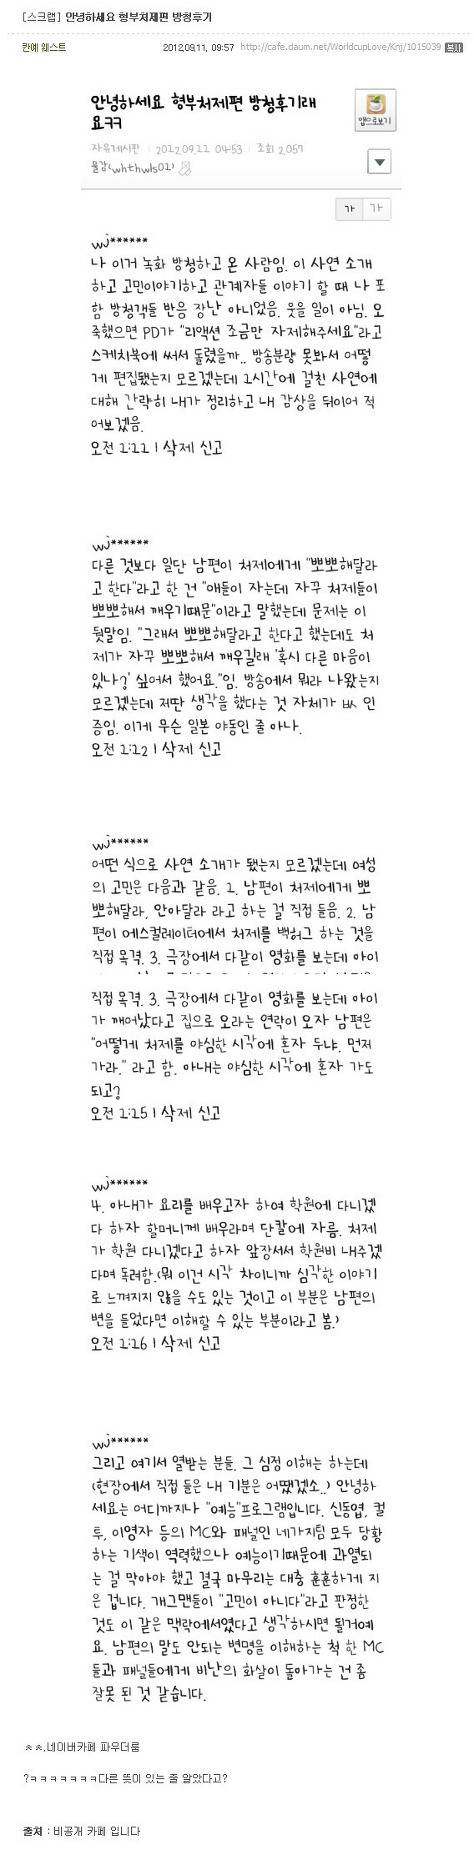 [스크랩] 안녕하세요 형부처제편 방청후기
칸예 웨스트
2012.09.11. 09:57 http://cafe.daum.net/WorldcupLove/Knj/1015039 복사
안녕하세요 형부처제편 방청후기래
요ㅋㅋ
앱으로보기
자유게시판 | 2012.09.11 04:53 | 조회 2,059
물감(whthwls01)
가 가
wj******
나 이거 녹화 방청하고 온 사람임. 이 사연 소개
하고 고민이야기하고 관계자들 이야기 할 때 나 포
함 방청객들 반응 장난 아니었음. 웃을 일이 아님. 오
죽했으면 PD가 "리액션 조금만 자제해주세요"라고
스케치북에 써서 돌렸을까.. 방송분량 못봐서 어떻
게 편집됐는지 모르겠는데 1시간에 걸친 사연에
대해 간략히 내가 정리하고 내 감상을 뒤이어 적
어보겠음.
오전 2:22 | 삭제 신고
wj******
다른 것보다 일단 남편이 처제에게 "뽀뽀해달라
고 한다"라고 한 건 "애들이 자는데 자꾸 처제들이
뽀뽀해서 깨우기때문"이라고 말했는데 문제는 이
뒷말임. "그래서 뽀뽀해달라고 한다고 했는데도 처
제가 자꾸 뽀뽀해서 깨우길래 '혹시 다른 마음이
있나?' 싶어서 했어요."임. 방송에서 뭐라 나왔는지
모르겠는데 저딴 생각을 했다는 것 자체가 ㅄ 인
증임. 이게 무슨 일본 야동인 줄 아나.
오전 2:22 | 삭제 신고
wj******
어떤 식으로 사연 소개가 됐는지 모르겠는데 여성
의 고민은 다음과 같음. 1. 남편이 처제에게 뽀
뽀해달라, 안아달라 라고 하는 걸 직접 들음. 2. 남
편이 에스컬레이터에서 처제를 백허그 하는 것을
직접 목격. 3. 극장에서 다같이 영화를 보는데 아이
직접 목격. 3. 극장에서 다같이 영화를 보는데 아이
가 깨어났다고 집으로 오라는 연락이 오자 남편은
"어떻게 처제를 야심한 시각에 혼자 두냐. 먼저
가라." 라고 함. 아내는 야심한 시각에 혼자 가도
되고?
오전 2:25 | 삭제 신고
wj******
4. 아내가 요리를 배우고자 하여 학원에 다니겠
다 하자 할머니께 배우라며 단칼에 자름. 처제
가 학원 다니겠다고 하자 앞장서서 학원비 내주겠
다며 독려함.(뭐 이건 시각 차이니까 심각한 이야기
로 느껴지지 않을 수도 있는 것이고 이 부분은 남편의
변을 들었다면 이해할 수 있는 부분이라고 봄.)
오전 2:26 | 삭제 신고
wj******
그리고 여기서 열받는 분들. 그 심정 이해는 하는데
(현장에서 직접 들은 내 기분은 어땠겠소..) 안녕하
세요는 어디까지나 "예능"프로그램입니다. 신동엽, 컬
투, 이영자 등의 MC와 패널인 네가지팀 모두 당황
하는 기색이 역력했으나 예능이기때문에 과열되
는 걸 막아야 했고 결국 마무리는 대충 훈훈하게 지
은 겁니다. 개그맨들이 "고민이 아니다"라고 판정한
것도 이 같은 맥락에서였다고 생각하시면 될거예
요. 남편의 말도 안되는 변명을 이해하는 척 한 MC
들과 패널들에게 비난의 화살이 돌아가는 건 좀
잘못 된 것 같습니다.
ㅊㅊ.네이버카페 파우더룸
?ㅋㅋㅋㅋㅋㅋㅋ다른 뜻이 있는 줄 알았다고?
출처 : 비공개 카페 입니다